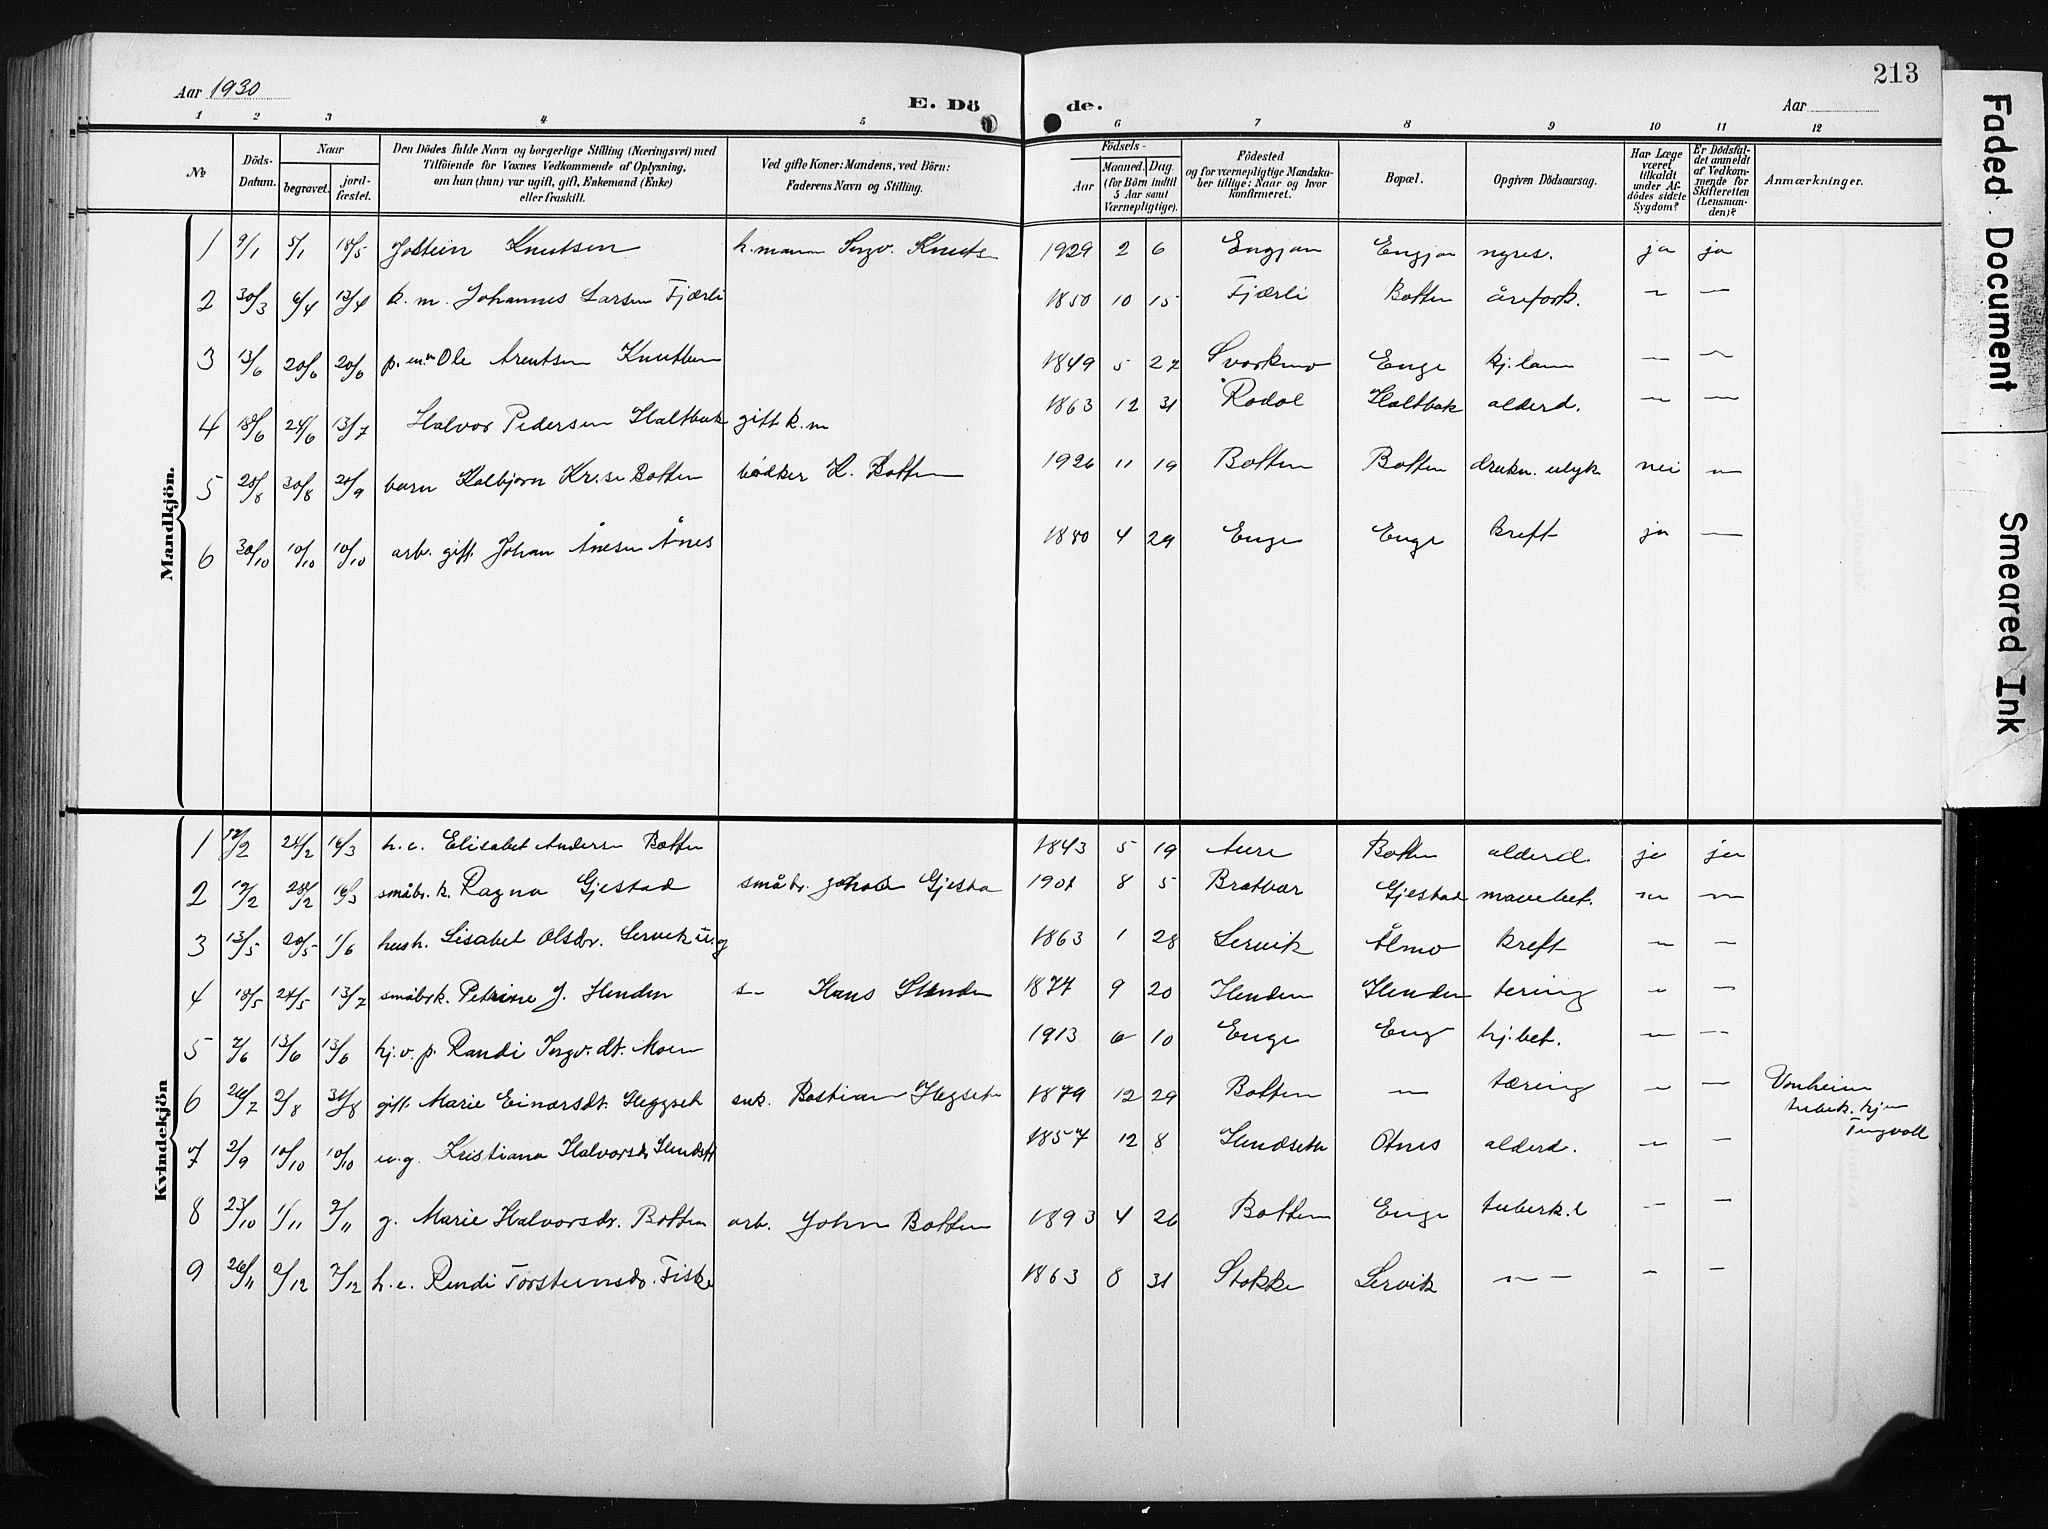 213
Aar 1930
E. Dö de.
Aar
1 2 3 4 5 6 7 8 9 10 11 12
№
Döds-
Datum.
Naar
begravet.
jord-
fæstet.
Den Dödes fulde Navn og borgerlige Stilling (Næringsvei) med
Tilföiende for Voxnes Vedkommende af Oplysning,
om han (hun) var ugift, gift, Enkemand (Enke)
eller fraskilt.
Ved gifte Koner: Mandens, ved Börn:
Faderens Navn og Stilling.
Födsels-
Aar
Maaned. Dag.
(for Börn indtil
5 Aar samt
Værnepligtige).
Födested
og for værnepligtige Mandska-
ber tillige: Naar og hvor
konfirmeret.
Bopæl.
Opgiven Dödsaarsag.
Har Læge
været
tilkaldt
under Af-
dödes sidste
Sygdom?
Er Dödsfal-
det anmeldt
af Vedkom-
mende for
Skifteretten
(Lensman-
den)?
Anmærkninger.
Mandkjön.
1 9/1 5/1 18/5 Jostein Knutsen k. mann Ingv. Knuts 1929 2 6 Engjan Engjan ja ja
2 30/3 6/4 13/4 k. m. Johannes Larsen Fjærli 1850 10 15 Fjærli Botten årefork. — —
3 13/6 20/6 20/6 Ole Arentsen Knutsen 1849 5 27 Svorkmo Enge kj. lam — —
4 18/6 24/6 13/7 Halvor Pedersen Haltbak gift k. m 1863 12 31 Rodal Haltbak alderd. — —
5 28/8 30/8 21/9 barn Kolbjørn Kr.sen Botten bødker K. Botten 1926 11 19 Botten Botten drukn. ulyk nei —
6 30/10 10/10 10/10 arb. gift Johan Ånesen Ånes 1880 4 29 Enge Enge kreft ja —
Kvindekjön
1 12/2 24/2 16/3 h. e. Elisabet Andersn Botten 1843 5 19 Aure Botten alderd. ja ja
2 19/2 28/2 16/3 småbr. k. Ragna Gjestad småbr. Johan Gjesta 1901 8 5 Bratvær Gjestad mavebet. — —
3 13/5 20/5 1/6 hush. Lisabet Olsdr. Lervik u. g 1863 1 28 Lervik Ålmo kreft — —
4 18/5 24/5 13/7 småbrk. Petrine J. Henden Hans Henden 1877 9 20 Henden Henden tering — —
5 7/6 13/6 13/6 hj. v. p. Randi Ingv. dt. Moen 1913 6 10 Enge Eng hj. bet. — —
6 26/7 2/8 31/8 gift Marie Einarsdt. Heggset snk. Bastian Hegset 1879 12 29 Botten — tæring — — Vonheim
tuberk. hjem
Tingvoll
7 2/9 10/10 10/10 u. g. Kristiana Halvorsdr Hendset 1857 12 8 Hendseth Otnes alderd. — —
8 23/10 1/11 9/11 g. Marie Halvorsdr. Botten arb. John Botten 1893 4 26 Botten Enge tuberk. l — —
9 26/11 2/12 7/12 h. e. Rendi Torsteinsdr. Fiske 1863 8 31 Stokke Lervik — — —
Faded Document
Smeared Ink